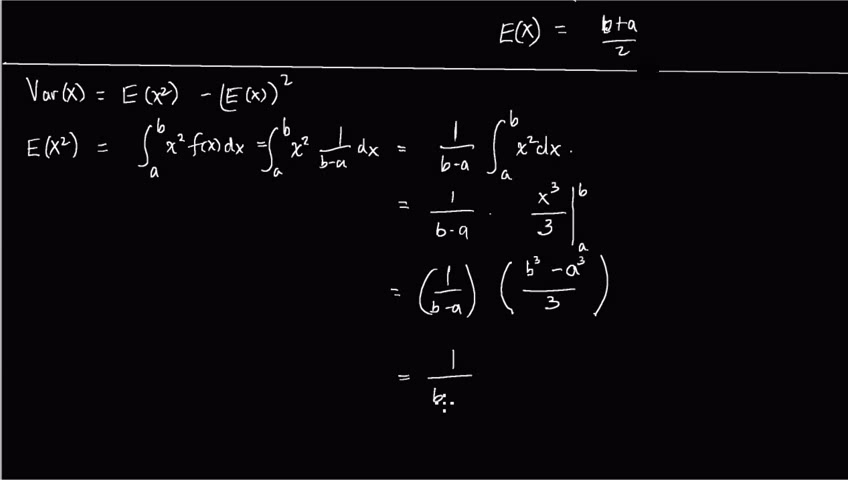 E(X) = b+a/2
Var(x) = E(x²) - (E(x))²
E(X²) = ∫ₐᵇ x² f(x) dx = ∫ₐᵇ x² 1/(b-a) dx = 1/(b-a) ∫ₐᵇ x² dx.
= 1/(b-a) · x³/3 |ₐᵇ
= (1/(b-a)) ((b³ - a³)/3)
= 1/b